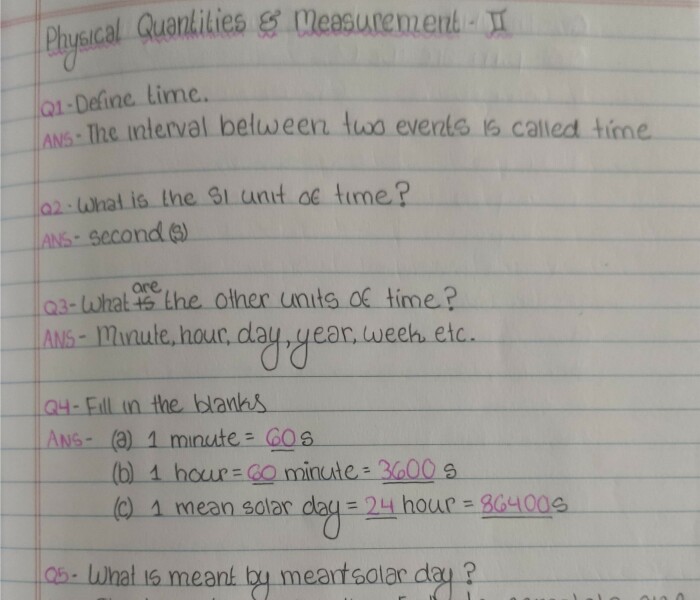 Physical Quantities & Measurement - II
Q1- Define time.
ANS- The interval between two events is called time
Q2- What is the SI unit of time?
ANS- second (s)
Q3- What are the other units of time?
ANS- Minute, hour, day, year, week etc.
Q4- Fill in the blanks
ANS- (a) 1 minute = 60 s
(b) 1 hour = 60 minute = 3600 s
(c) 1 mean solar day = 24 hour = 86400 s
Q5- What is meant by mean solar day?